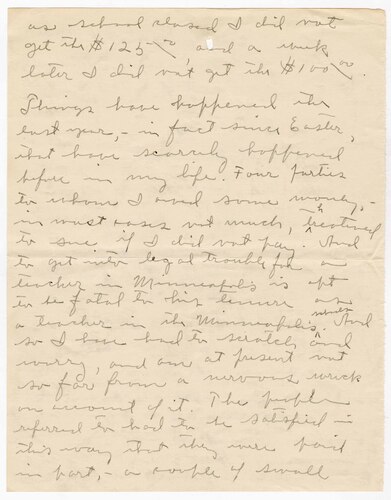 as school closed I did not
get the $125.00, and a week
later I did not get the $100.00.
Things have happened the
last year, - in fact since Easter,
that have scarcely happened
before in my life. Four parties
to whom I owed some money, -
in most cases not much, threatened
to sue, if I did not pay. And
to get into legal trouble for a
teacher in Minneapolis is apt
to be fatal to his tenure as
a teacher in the Minneapolis schools. And
so I have had to scratch and
worry, and am at present not
so far from a nervous wreck
on account of it. The people
referred to had to be satisfied in
this way that they were paid
in part, - a couple of small